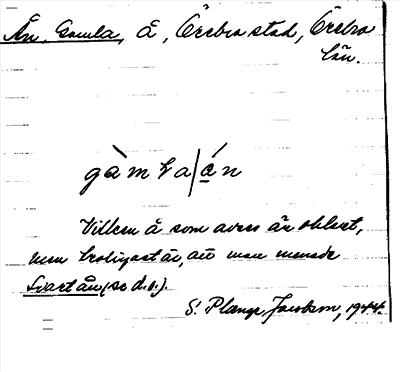 Ån, Gamla, å, Örebro stad, Örebro
län.
gàmḷa/án
Vilken å som avses är oklart,
men troligast är, att man menade
Svartån (se d.o.).
S. Plange Jacobson, 1944.